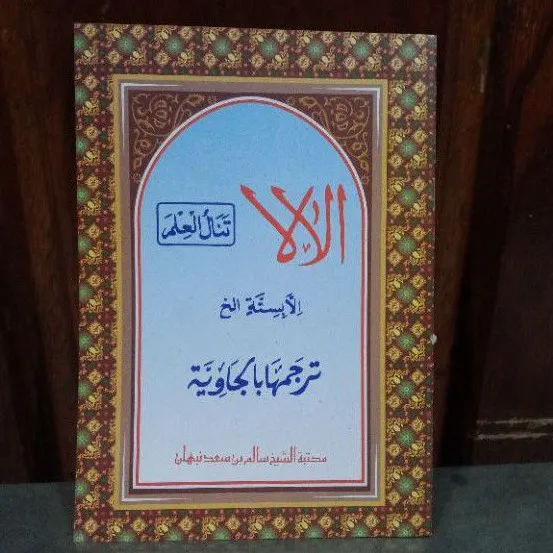 الالا
تَنَالُ الْعِلْمَ
اِلَّابِسِتَّةٍ الخ
ترجمهَا بالجَاوِيَّة
مكتبة الشيخ سالم بن سعد نبهان